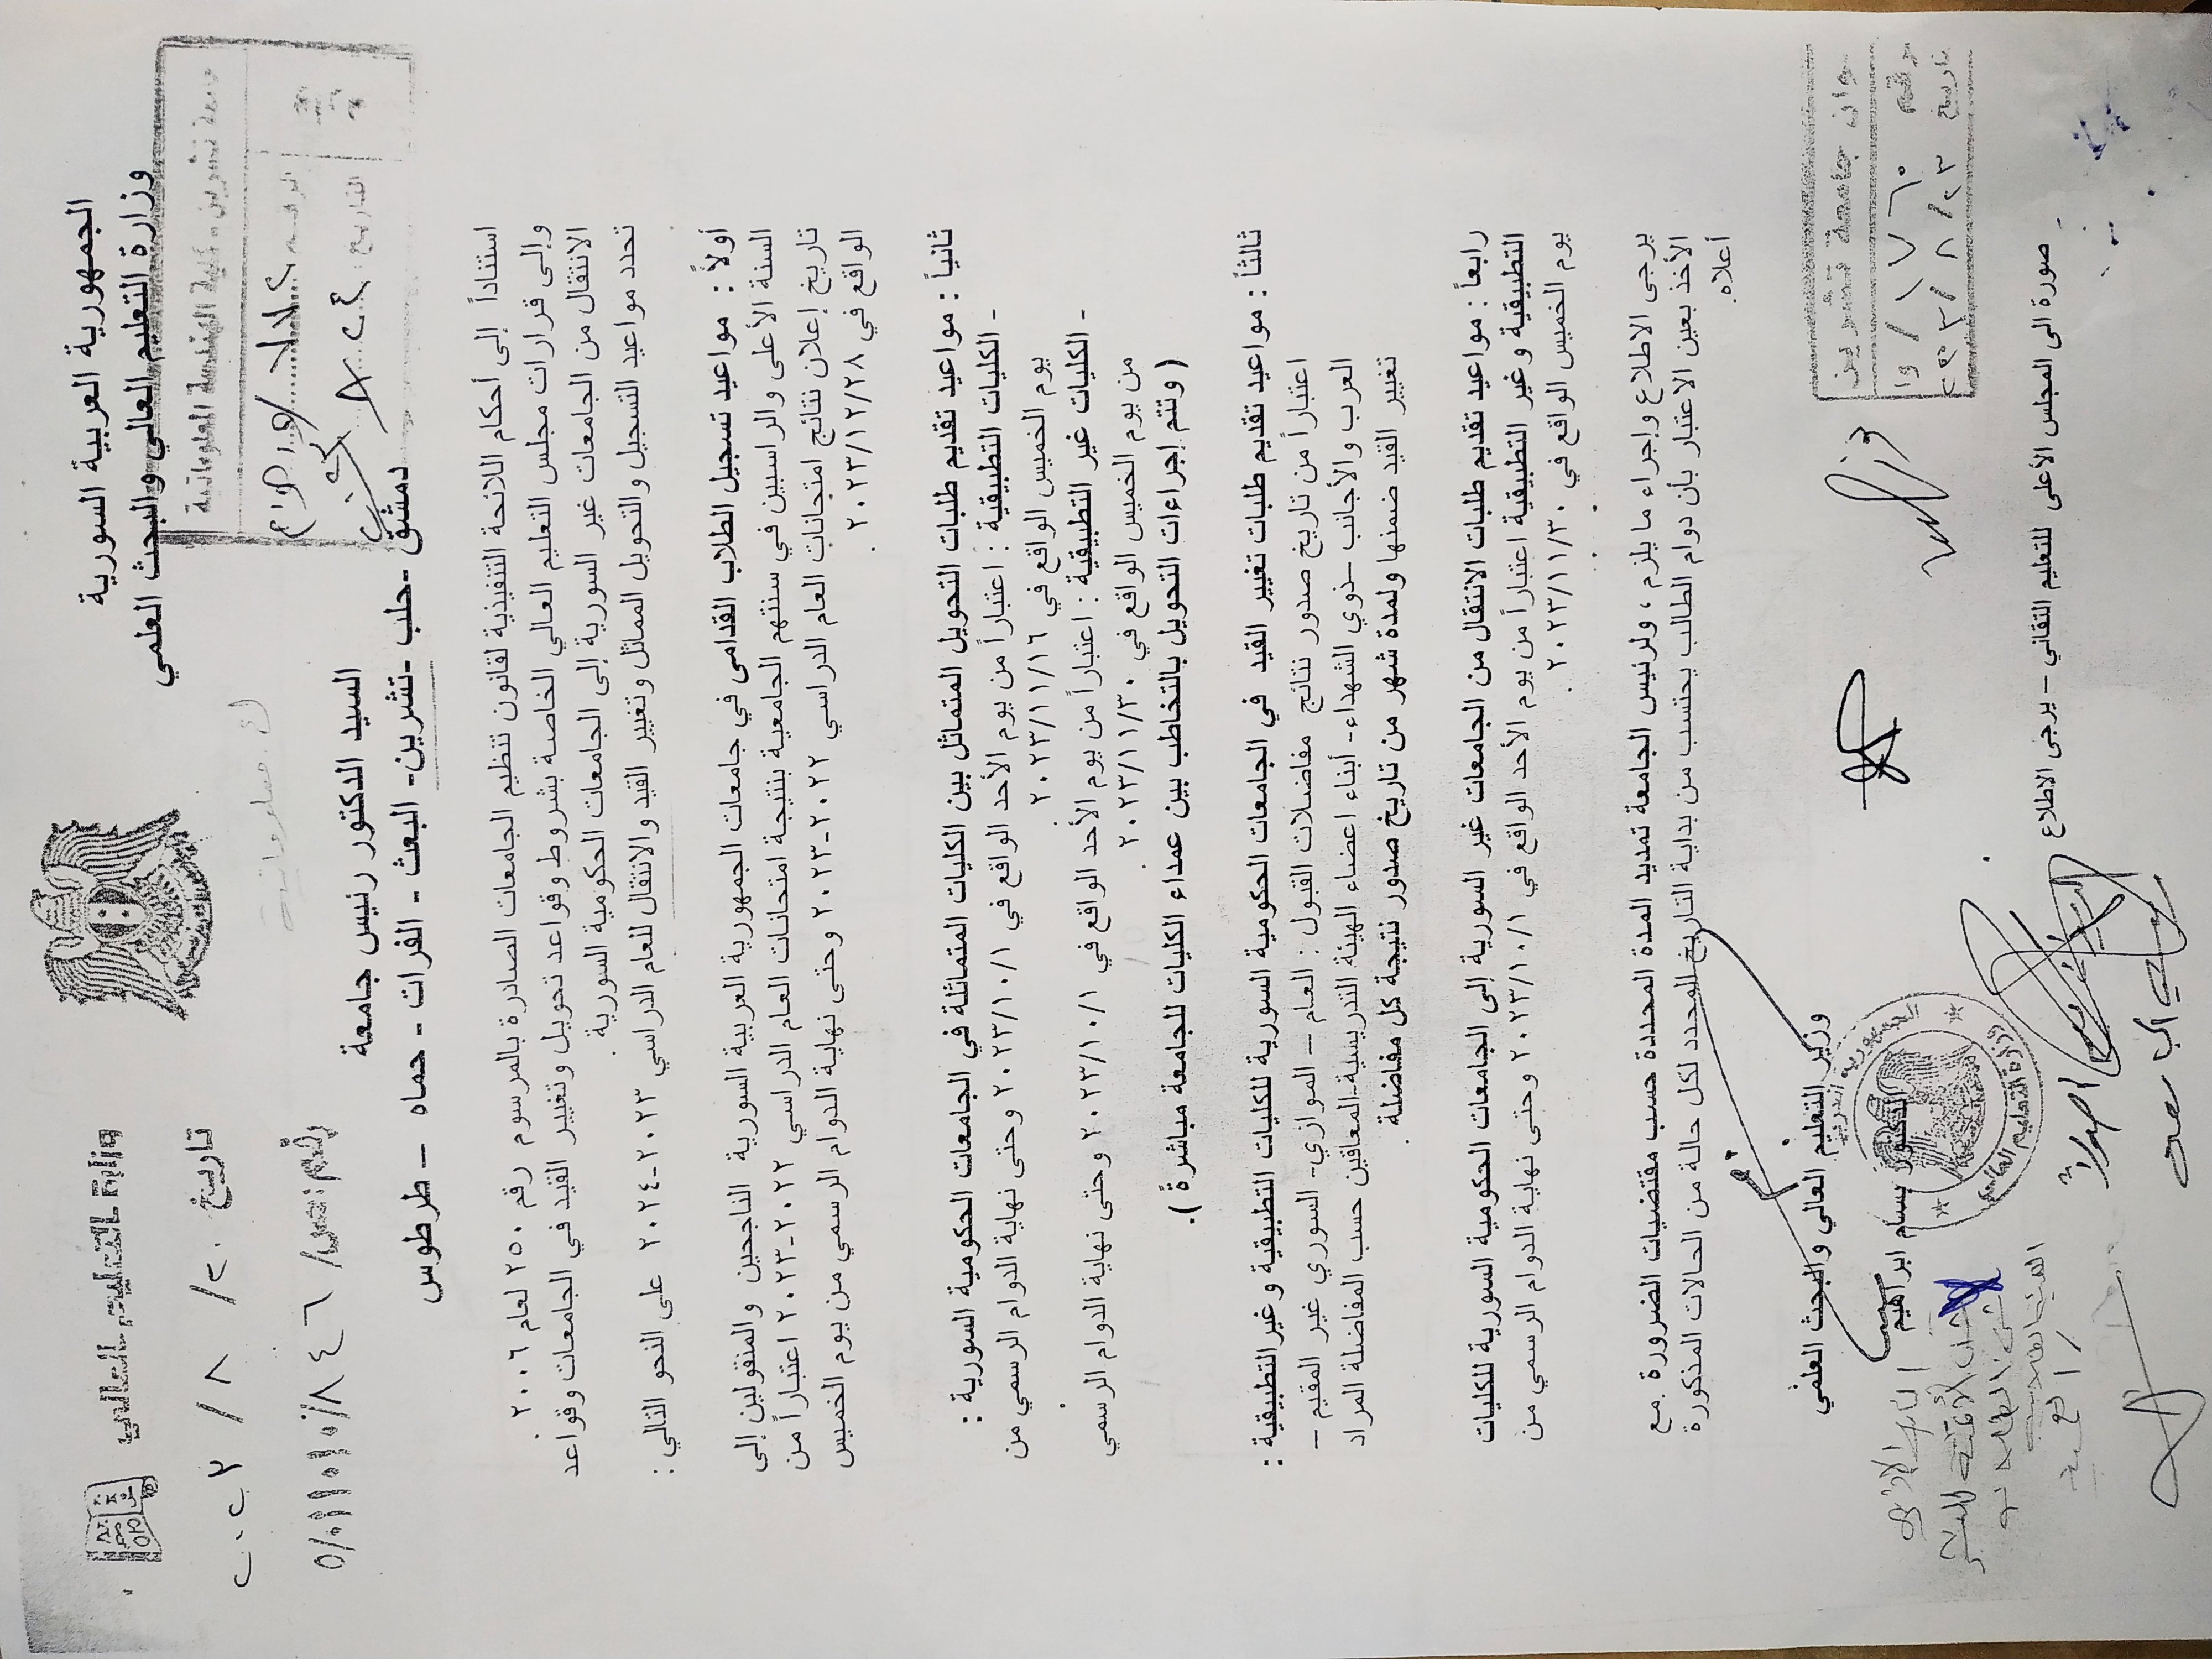 الجمهورية العربية السورية
وزارة التعليم العالي والبحث العلمي
وزارة التعليم العالي
تاريخ ٢٠ / ٨ / ٢٠٢٣
جامعة تشرين - كلية الهندسة المعلوماتية
التاريخ :
السيد الدكتور رئيس جامعة
دمشق -حلب -تشرين- البعث - الفرات - حماه – طرطوس
استناداً إلى أحكام اللائحة التنفيذية لقانون تنظيم الجامعات الصادرة بالمرسوم رقم ٢٥٠ لعام ٢٠٠٦
وإلى قرارات مجلس التعليم العالي الخاصة بشروط وقواعد تحويل وتغيير القيد في الجامعات وقواعد
الانتقال من الجامعات غير السورية إلى الجامعات الحكومية السورية .
تحدد مواعيد التسجيل والتحويل المماثل وتغيير القيد والانتقال للعام الدراسي ٢٠٢٣-٢٠٢٤ على النحو التالي :
أولاً : مواعيد تسجيل الطلاب القدامى في جامعات الجمهورية العربية السورية الناجحين والمنقولين إلى
السنة الأعلى والراسبين في سنتهم الجامعية بنتيجة امتحانات العام الدراسي ٢٠٢٢-٢٠٢٣ اعتباراً من
تاريخ إعلان نتائج امتحانات العام الدراسي ٢٠٢٢-٢٠٢٣ وحتى نهاية الدوام الرسمي من يوم الخميس
الواقع في ٢٠٢٣/١٢/٢٨ .
ثانياً : مواعيد تقديم طلبات التحويل المتماثل بين الكليات المتماثلة في الجامعات الحكومية السورية :
- الكليات التطبيقية : اعتباراً من يوم الأحد الواقع في ٢٠٢٣/١٠/١ وحتى نهاية الدوام الرسمي من
يوم الخميس الواقع في ٢٠٢٣/١١/١٦
- الكليات غير التطبيقية : اعتباراً من يوم الأحد الواقع في ٢٠٢٣/١٠/١ وحتى نهاية الدوام الرسمي
من يوم الخميس الواقع في ٢٠٢٣/١١/٣٠ .
( وتتم إجراءات التحويل بالتخاطب بين عمداء الكليات للجامعة مباشرةً ).
ثالثاً : مواعيد تقديم طلبات تغيير القيد في الجامعات الحكومية السورية للكليات التطبيقية وغير التطبيقية :
اعتباراً من تاريخ صدور نتائج مفاضلات القبول : العام – الموازي- السوري غير المقيم –
العرب والأجانب –ذوي الشهداء- أبناء اعضاء الهيئة التدريسية-المعاقين حسب المفاضلة المراد
تغيير القيد ضمنها ولمدة شهر من تاريخ صدور نتيجة كل مفاضلة .
رابعاً : مواعيد تقديم طلبات الانتقال من الجامعات غير السورية إلى الجامعات الحكومية السورية للكليات
التطبيقية وغير التطبيقية اعتباراً من يوم الأحد الواقع في ٢٠٢٣/١٠/١ وحتى نهاية الدوام الرسمي من
يوم الخميس الواقع في ٢٠٢٣/١١/٣٠ .
يرجى الاطلاع وإجراء ما يلزم ، ولرئيس الجامعة تمديد المدة المحددة حسب مقتضيات الضرورة مع
الأخذ بعين الاعتبار بأن دوام الطالب يحتسب من بداية التاريخ المحدد لكل حالة من الحالات المذكورة
أعلاه.
وزير التعليم العالي والبحث العلمي
الدكتور بسام ابراهيم
ديوان جامعة تشرين
رقم ١٧٦٠ / وا
تاريخ ٢٠٢٣/٨/٢٣
صورة الى المجلس الأعلى للتعليم التقاني – يرجى الاطلاع